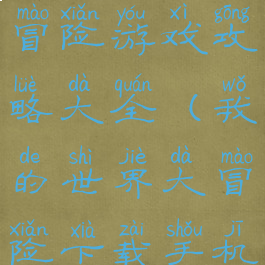 mào xiǎn yóu xì gōng
冒险游戏攻
lüè dà quán wǒ
略大全（我
de shì jiè dà mào
的世界大冒
xiǎn xià zài shǒu jī
险下载手机